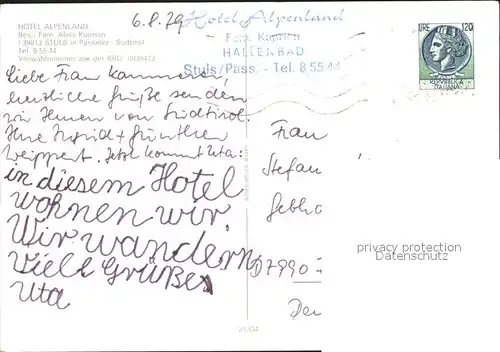 HOTEL ALPENLAND
Bes.: Fam. Alois Kuprian
I-39013 STULS in Passeier - Südtirol
Tel. 8 55 44
Vorwahlnummer aus der BRD
6.8.79 Hotel Alpenland
Fam. Kuprian
HALLENBAD
Stuls/Pass. - Tel. 8 55 44
LIRE 120
REPVBBLICA
ITALIANA
Liebe Frau
herzliche Grüße senden
wir Ihnen von Südtirol.
Ihre Ingrid + Günther
Weippert. Jetzt kommt Uta:
in diesem Hotel
wohnen wir.
Wir wandern
Viele Grüße
Uta
Frau
Stefan
Gebha
D7990
privacy protection
Datenschutz